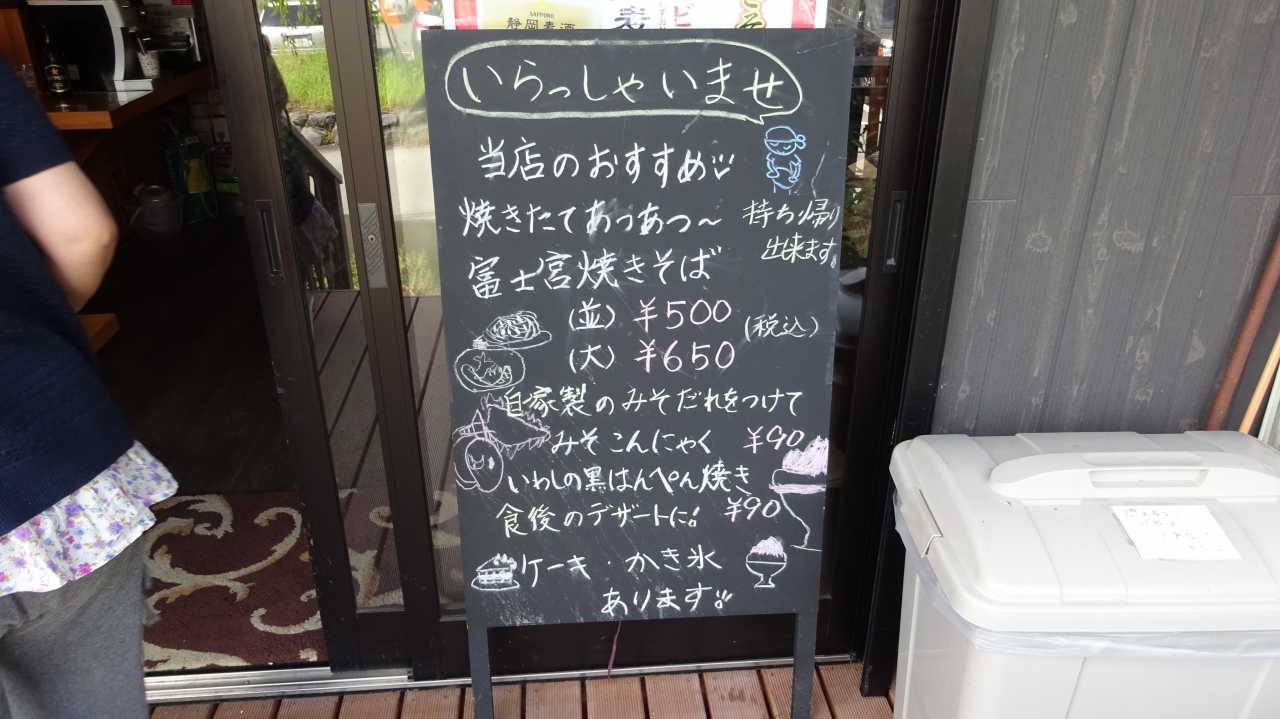 SAPPORO
静岡麦酒
いらっしゃいませ
当店のおすすめ
焼きたてあつあつ〜
持ち帰り
出来ます。
富士宮焼きそば
(並) ¥500
(税込)
(大) ¥650
自家製のみそだれをつけて
みそこんにゃく ¥90
いわしの黒はんぺん焼き
¥90
食後のデザートに!
ケーキ・かき氷
あります!!